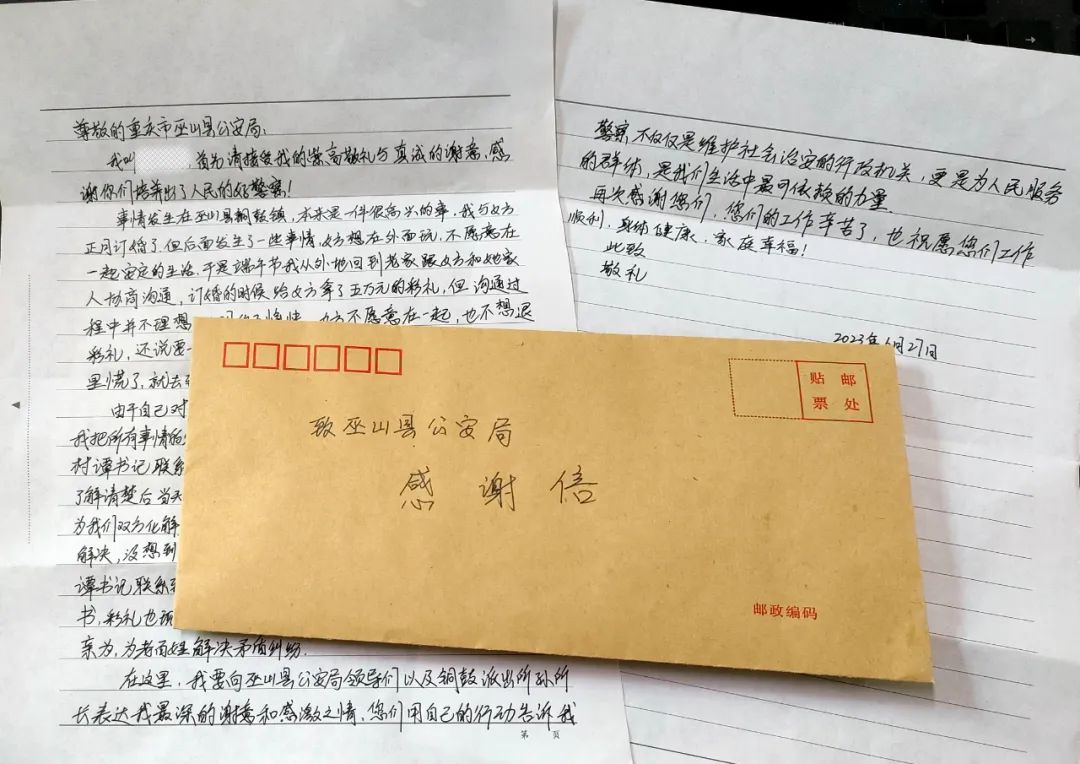 尊敬的重庆市巫山县公安局:
我叫 ,首先请接受我的崇高敬礼与真诚的谢意,感
谢你们培养出了人民的好警察!
事情发生在巫山县铜鼓镇,本来是一件很高兴的事,我与女方
正月订婚了,但后面发生了一些事情,女方想在外面玩,不愿意在
一起安定的生活,于是端午节我从外地回到老家跟女方和她家
人协商沟通,订婚的时候给女方拿了五万元的彩礼,但沟通过
程中并不理想
女方不愿意在一起,也不想退
彩礼,还说要
里慌了,就去
由于自己对
我把所有事情的
村谭书记联系
了解清楚后当天
为我们双方化解
解决,没想到
谭书记联系
书,彩礼也
亲为,为老百姓解决矛盾纠纷.
在这里,我要向巫山县公安局领导们以及铜鼓派出所孙所
长表达我最深的谢意和感激之情,您们用自己的行动告诉我
第 页
警察不仅仅是维护社会治安的行政机关,更是为人民服务
的群体,是我们生活中最可依赖的力量.
再次感谢您们,您们的工作辛苦了,也祝愿您们工作
顺利,身体健康,家庭幸福!
此致
敬礼
2023年6月27日
贴 邮
票 处
致巫山县公安局
感 谢 信
邮政编码